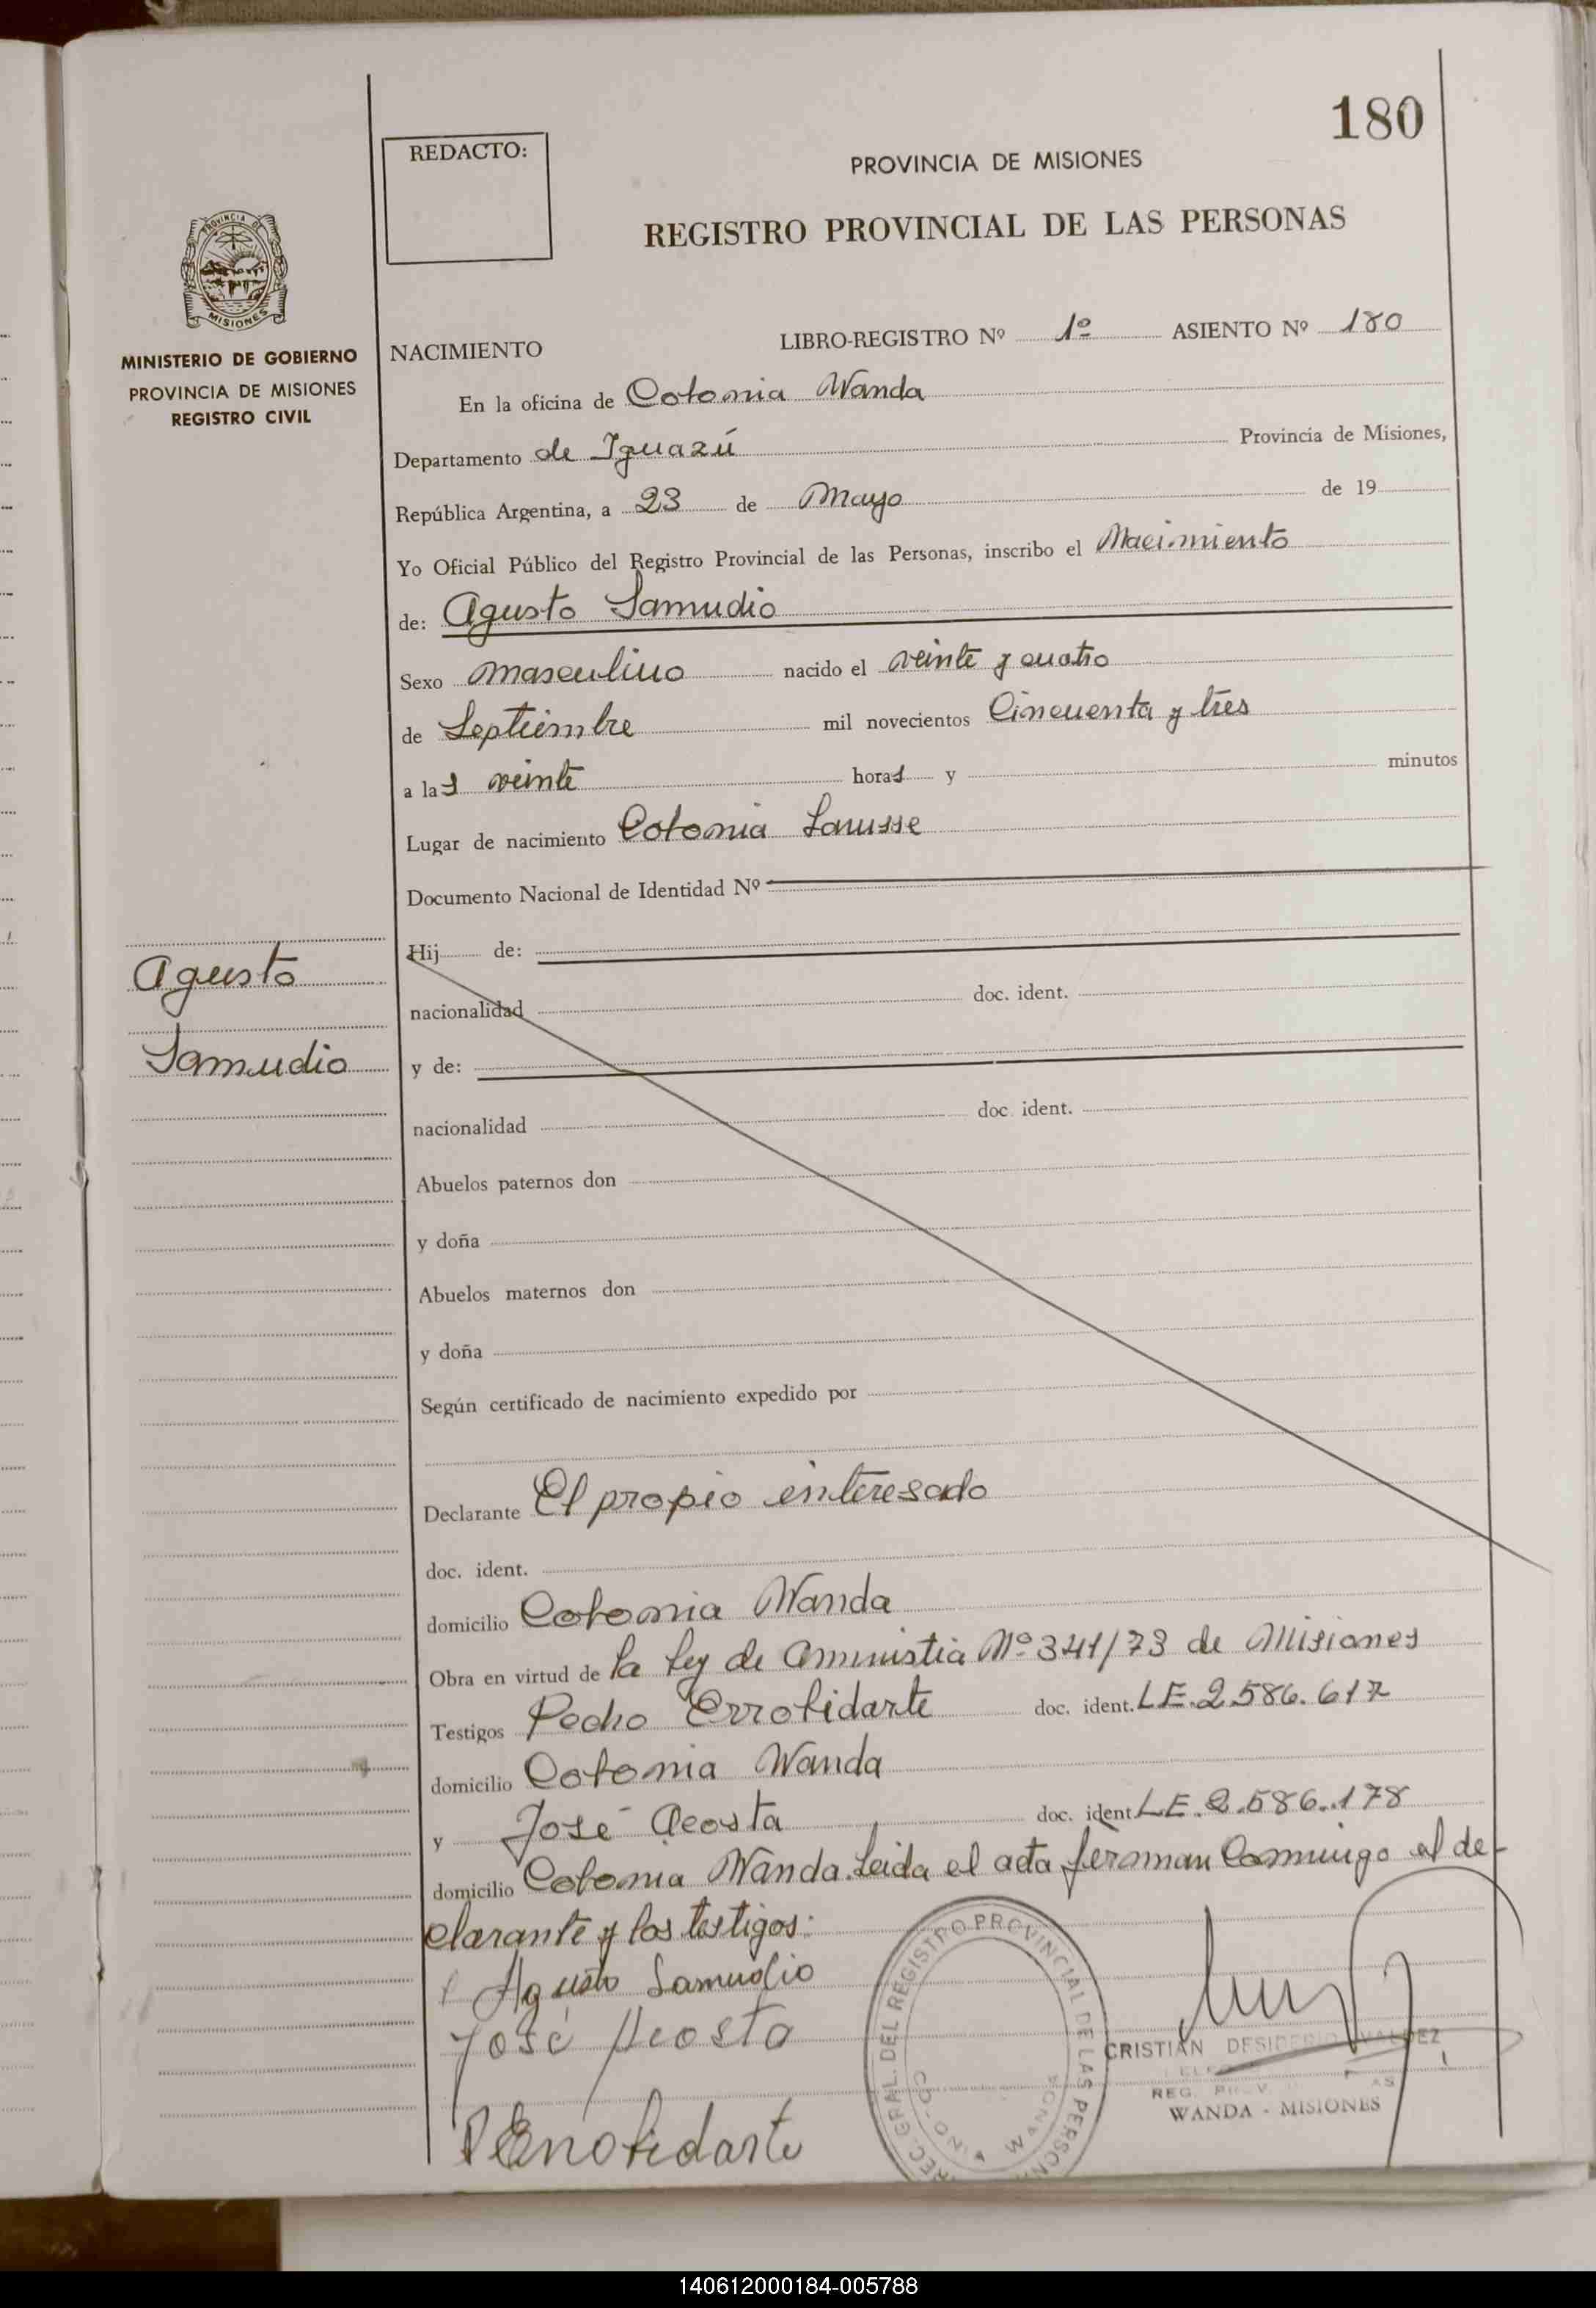 180
REDACTO:
PROVINCIA DE MISIONES
REGISTRO PROVINCIAL DE LAS PERSONAS
PROVINCIA DE
MISIONES
MINISTERIO DE GOBIERNO
PROVINCIA DE MISIONES
REGISTRO CIVIL
NACIMIENTO LIBRO-REGISTRO Nº 1º ASIENTO Nº 180
En la oficina de Colonia Wanda
Departamento de Iguazú Provincia de Misiones,
República Argentina, a 23 de Mayo de 19
Yo Oficial Público del Registro Provincial de las Personas, inscribo el Nacimiento
de: Agusto Samudio
Sexo masculino nacido el veinte y cuatro
de Septiembre mil novecientos Cincuenta y tres
a las veinte horas y minutos
Lugar de nacimiento Colonia Lanusse
Documento Nacional de Identidad Nº
Hij de:
Agusto
nacionalidad doc. ident.
Samudio
y de:
nacionalidad doc. ident.
Abuelos paternos don
y doña
Abuelos maternos don
y doña
Según certificado de nacimiento expedido por
Declarante El propio interesado
doc. ident.
domicilio Colonia Wanda
Obra en virtud de la Ley de Amnistia Nº 341/73 de Misiones
Testigos Pedro Errolidarte doc. ident. LE.2.586.617
domicilio Colonia Wanda
y José Acosta doc. ident LE.2.586.178
domicilio Colonia Wanda. Leida el acta firman Conmigo el de-
clarante y los testigos:
Agusto Samudio
José Acosta
P Errolidarte
REC. GRAL. DEL REGISTRO PROVINCIAL DE LAS PERSON
WANDA
CRISTIAN DESIDERIO VALDEZ
REG. PROV.
WANDA - MISIONES
140612000184-005788